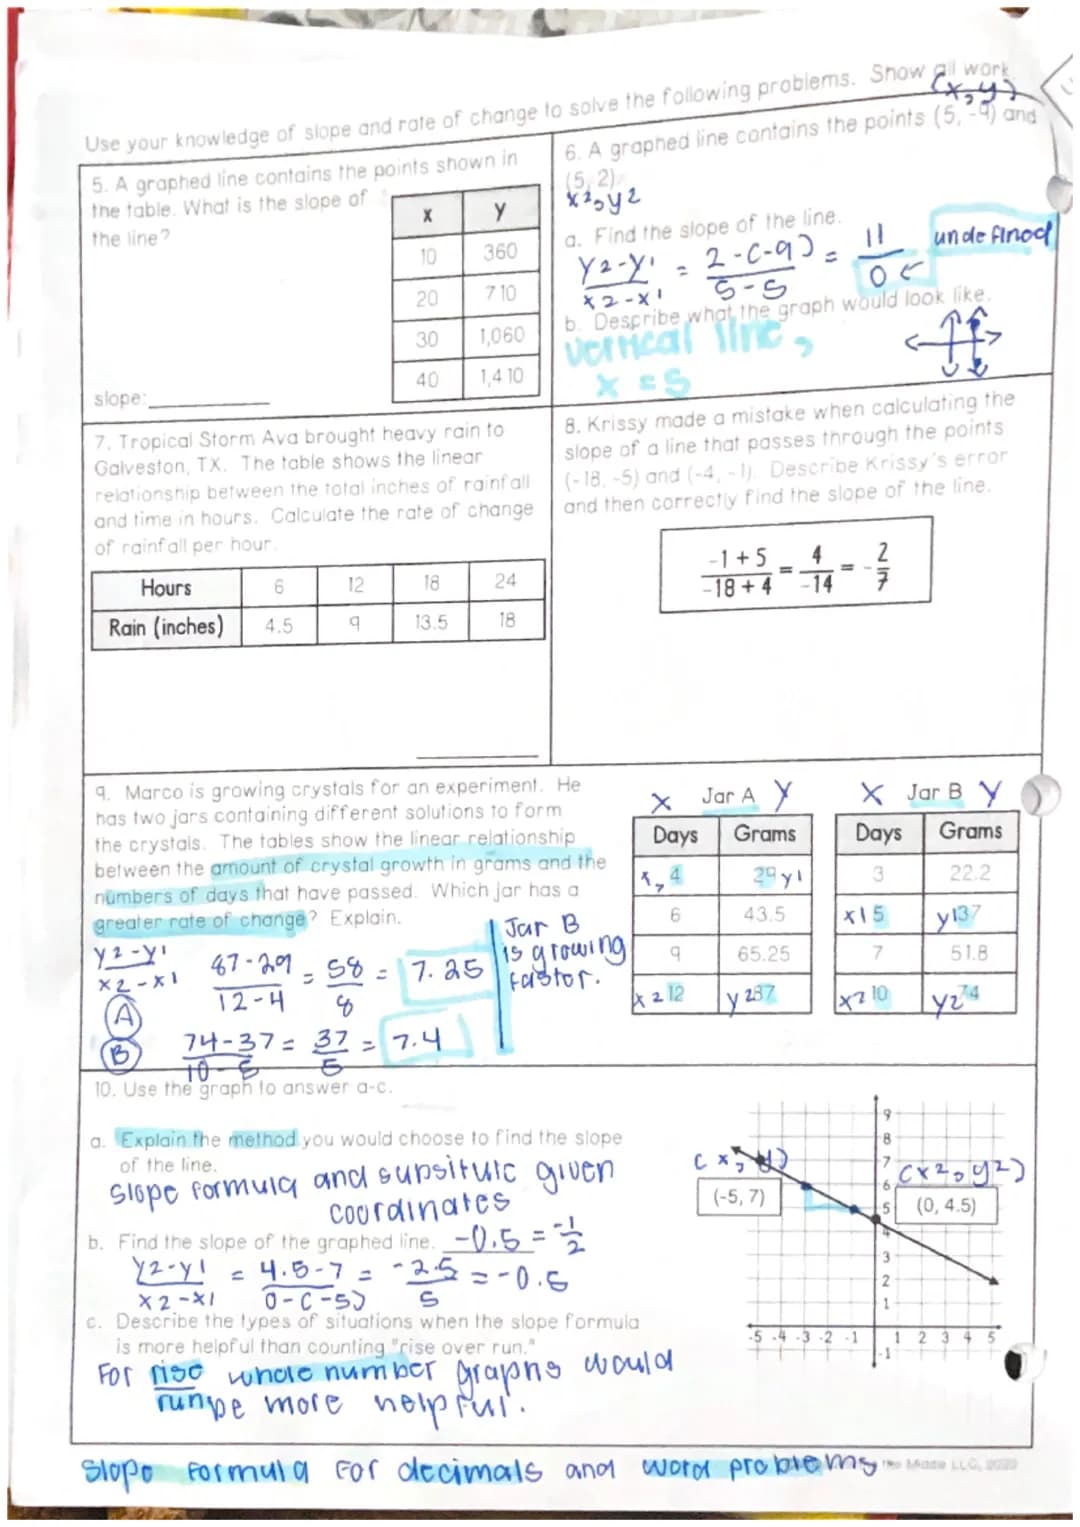 Use your knowledge of slope and rate of change to solve the following problems. Show all work.
(x, y)
5. A graphed line contains the points shown in
the table. What is the slope of
the line?
x y
10 360
20 710
30 1,060
40 1,410
slope:
6. A graphed line contains the points (5, -9) and
(5, 2).
x2, y2
a. Find the slope of the line.
y2-y1 = 2-(-9) = 11 undefined
x2-x1 5-5 0
b. Describe what the graph would look like.
vertical line,
x = 5
7. Tropical Storm Ava brought heavy rain to
Galveston, TX. The table shows the linear
relationship between the total inches of rainfall
and time in hours. Calculate the rate of change
of rainfall per hour.
Hours 6 12 18 24
Rain (inches) 4.5 9 13.5 18
8. Krissy made a mistake when calculating the
slope of a line that passes through the points
(-18, -5) and (-4, -1). Describe Krissy's error
and then correctly find the slope of the line.
-1 + 5 = 4 = - 2
-18 + 4 -14 7
9. Marco is growing crystals for an experiment. He
has two jars containing different solutions to form
the crystals. The tables show the linear relationship
between the amount of crystal growth in grams and the
numbers of days that have passed. Which jar has a
greater rate of change? Explain.
y2-y1
x2-x1
A
87-29 = 58 = 7.25
12-4 8
B
74-37 = 37 = 7.4
10-5 5
Jar B
is growing
faster.
X Jar A Y
Days Grams
x, 4 29 y1
6 43.5
9 65.25
x2 12 y2 87
X Jar B Y
Days Grams
3 22.2
x1 5 y1 37
7 51.8
x2 10 y2 74
10. Use the graph to answer a-c.
a. Explain the method you would choose to find the slope
of the line.
slope formula and supsitute given
coordinates
b. Find the slope of the graphed line. -0.5 = -1
2
y2-y1 = 4.5-7 = -2.5 = -0.5
x2-x1 0-(-5) 5
c. Describe the types of situations when the slope formula
is more helpful than counting "rise over run."
For rise whole number graphs would
run be more helpful.
(x, y)
(-5, 7)
(x2, y2)
(0, 4.5)
9
8
7
6
5
4
3
2
1
-5 -4 -3 -2 -1 1 2 3 4 5
-1
slope formula For decimals and word problems